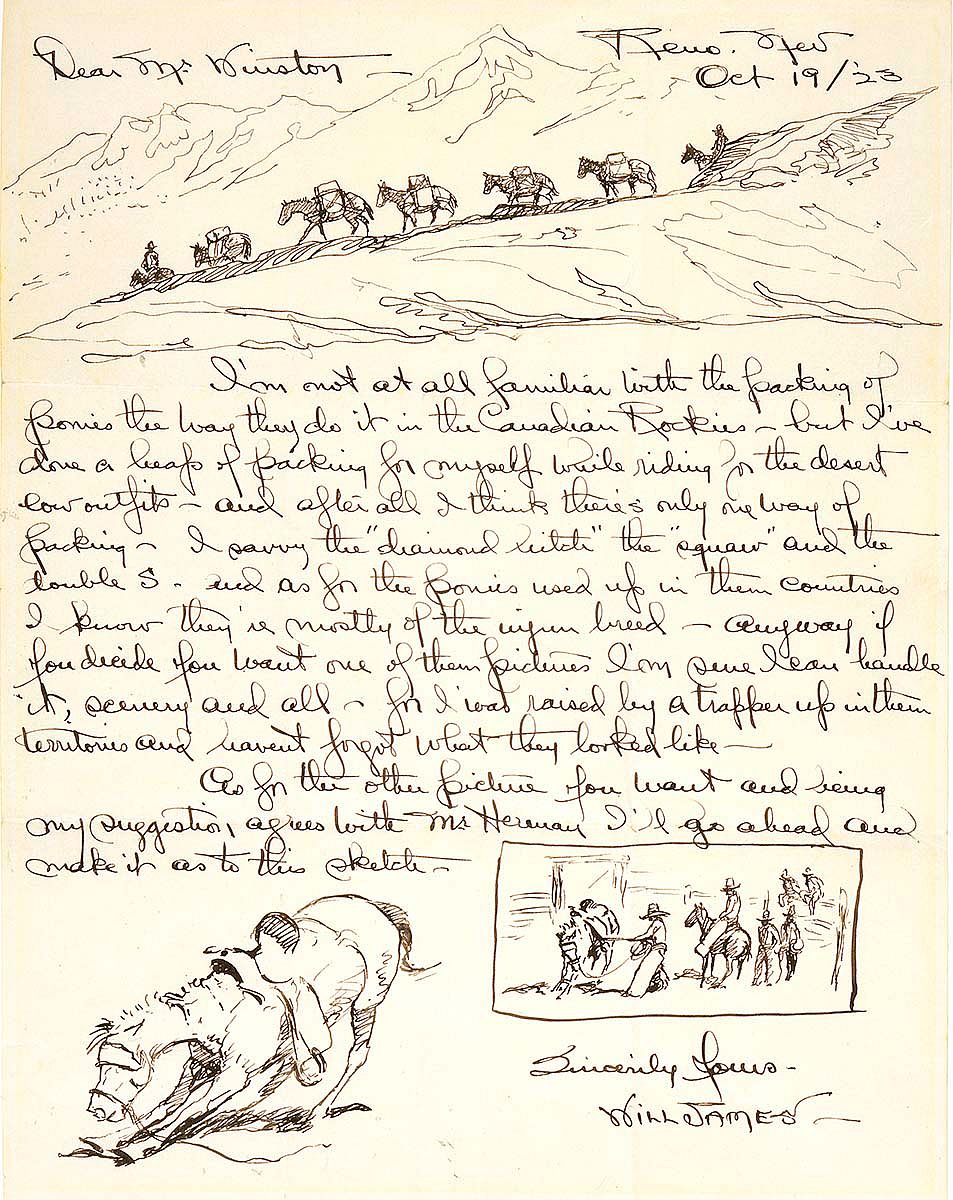 Dear Mr Winston —
Reno. Nev
Oct 19/'23
I'm not at all familiar with the packing of
ponies the way they do it in the Canadian Rockies — but I've
done a heap of packing for myself while riding for the desert
cow outfits — and after all I think there's only one way of
packing — I savvy the "diamond hitch" the "squaw" and the
double S — and as for the ponies used up in them countries
I know they're mostly of the injun breed — anyway if
you decide you want one of them pictures I'm sure I can handle
it, scenery and all — for I was raised by a trapper up in them
territories and havent forgot what they looked like —
As for the other picture you want and being
my suggestion, agrees with Mr Herman I'll go ahead and
make it as to this sketch —
Sincerily Yours —
WILL JAMES —